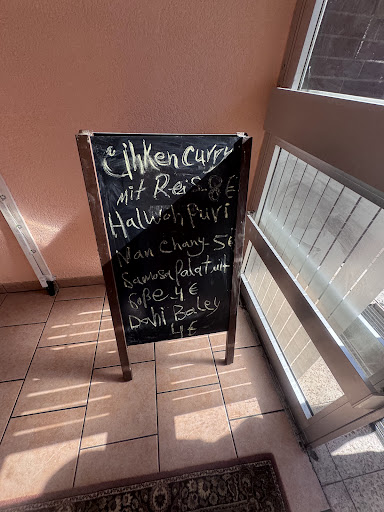 Chken curry
mit Reis 8 €
Halwah Puri
Nan Chany-5€
Sambosa Palat mit
Soße 4 €
Dahi Baley
4 €